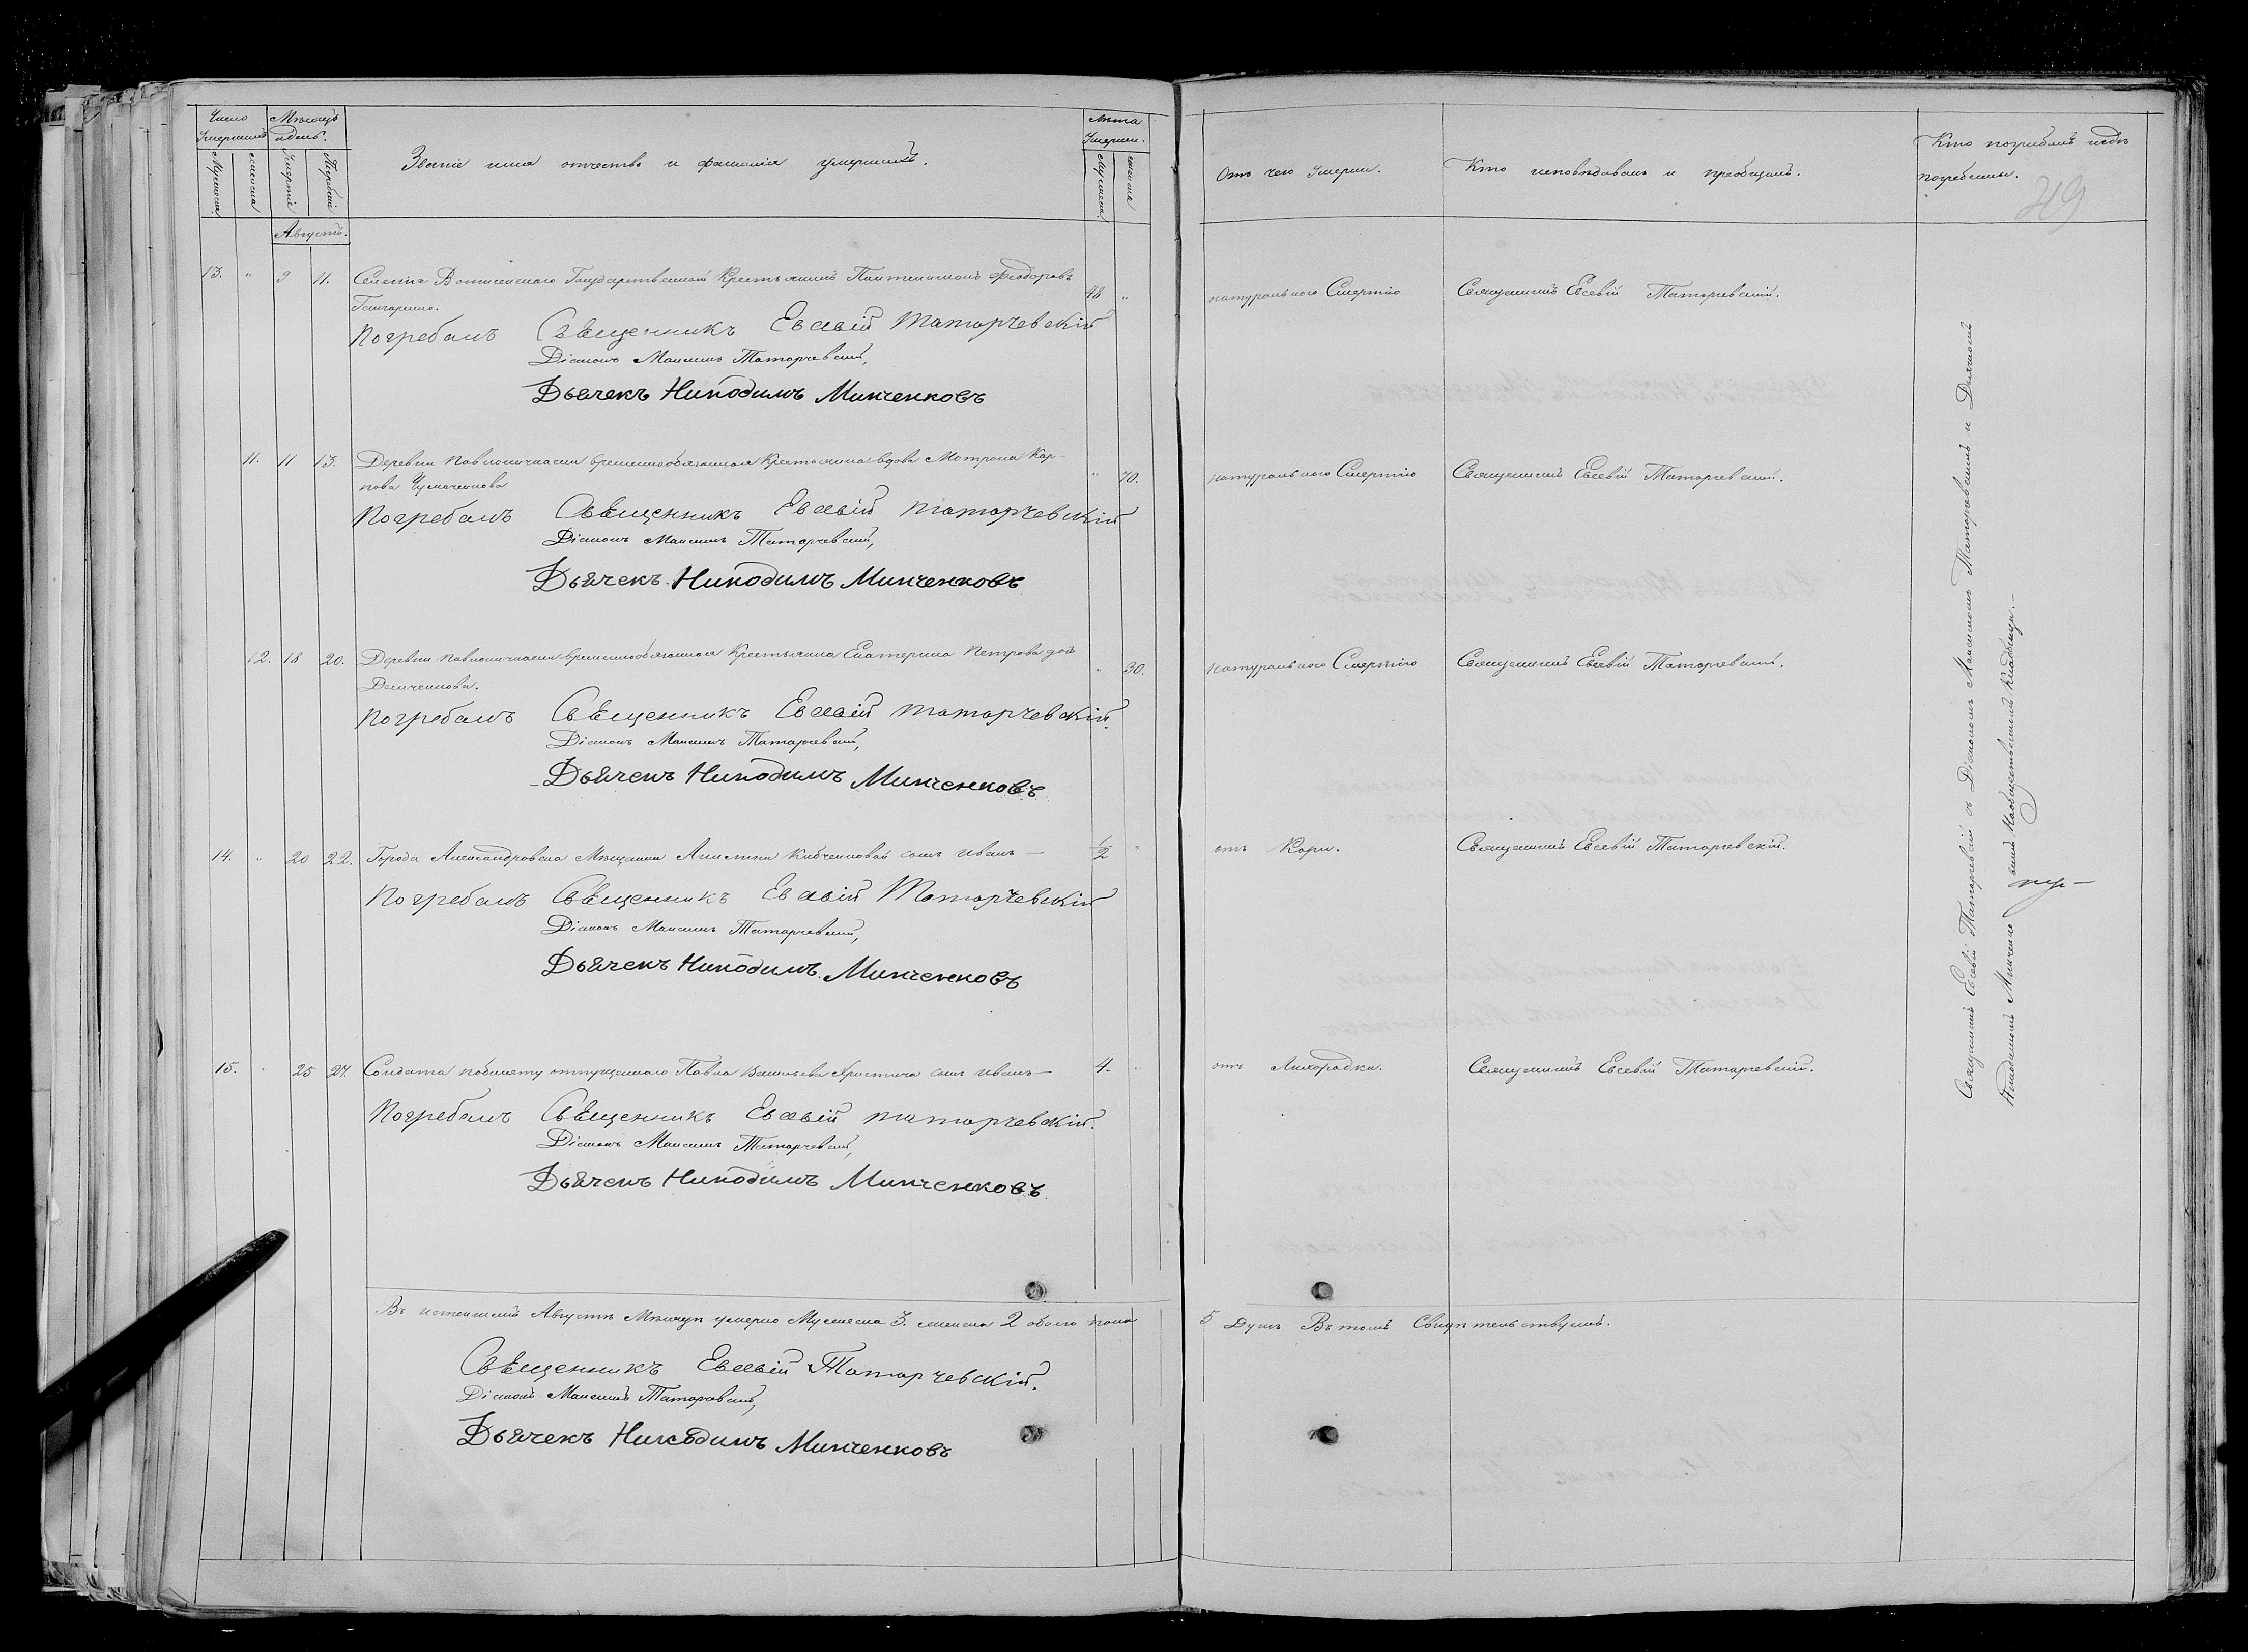 Число Умершихъ
Мѣсяцъ и день.
Мужеска
женска
Смерти
Погребенія
Званіе имя отчество и фамилія умершихъ.
Лѣта Умерши.
Мужеска
женска
Отъ чего Умерши.
Кто исповѣдывалъ и пріобщалъ.
Кто погребалъ и гдѣ
погребены.
49
Августъ.
13. " 9 11. Селенія Государственный Крестьянинъ Пантелимонъ Феодоровъ 48 " натуральною Смертію Священникъ Евсевій Татарчевскій.
Гончаренко.
Погребалъ Священникъ Евсевій Татарчевскій
Діаконъ Максимъ Татарчевскій,
Дьячекъ Никодимъ Минченковъ
11. 11 13. Деревни временнообязанная Крестьянина вдова Мотрона Кар- " 70. натуральною Смертію Священникъ Евсевій Татарчевскій.
пова
Погребалъ Священникъ Евсевій Татарчевскій
Діаконъ Максимъ Татарчевскій,
Дьячекъ Никодимъ Минченковъ
12. 18 20. Деревни временнообязанная Крестьянка Екатерина Петрова дочь " 30. натуральною Смертію Священникъ Евсевій Татарчевскій.
Демченкова.
Погребалъ Священникъ Евсевій Татарчевскій.
Діаконъ Максимъ Татарчевскій,
Дьячекъ Никодимъ Минченковъ
14. " 20 22. Города Александровска Мѣщанки Акилины сынъ Иванъ — 1/2 " отъ Кори. Священникъ Евсевій Татарчевскій.
Погребалъ Священникъ Евсевій Татарчевскій
Діаконъ Максимъ Татарчевскій,
Дьячекъ Никодимъ Минченковъ
15. " 25 27. Солдата по билету отпущеннаго Павла Васильева сынъ Иванъ — 4. " отъ Лихорадки. Священникъ Евсевій Татарчевскій.
Погребалъ Священникъ Евсевій Татарчевскій.
Діаконъ Максимъ Татарчевскій,
Дьячекъ Никодимъ Минченковъ
Въ истекшемъ Августѣ Мѣсяцѣ умерло Мужеска 3. женска 2 обоего пола 5 Душъ Въ томъ Свидѣтельствуемъ.
Священникъ Евсевій Татарчевскій.
Діаконъ Максимъ Татарчевскій,
Дьячекъ Никодимъ Минченковъ
Священникъ Евсевій Татарчевскій съ Діакономъ Максимомъ Татарчевскимъ и Дьячкомъ
Никодимомъ Минченко вымъ на общественномъ Кладбищѣ. —